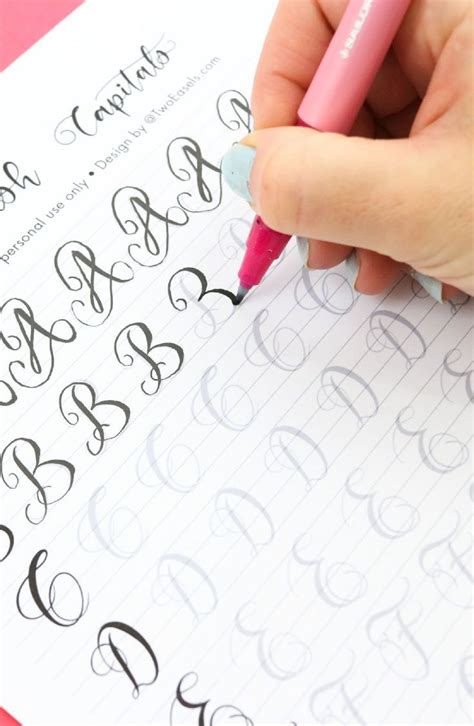 sh Capitals
personal use only • Design by @TwoEasels.com
A A A A A
B B B B
C C C C C C
D D D D D D
E E E E E
F F F
SAILOR